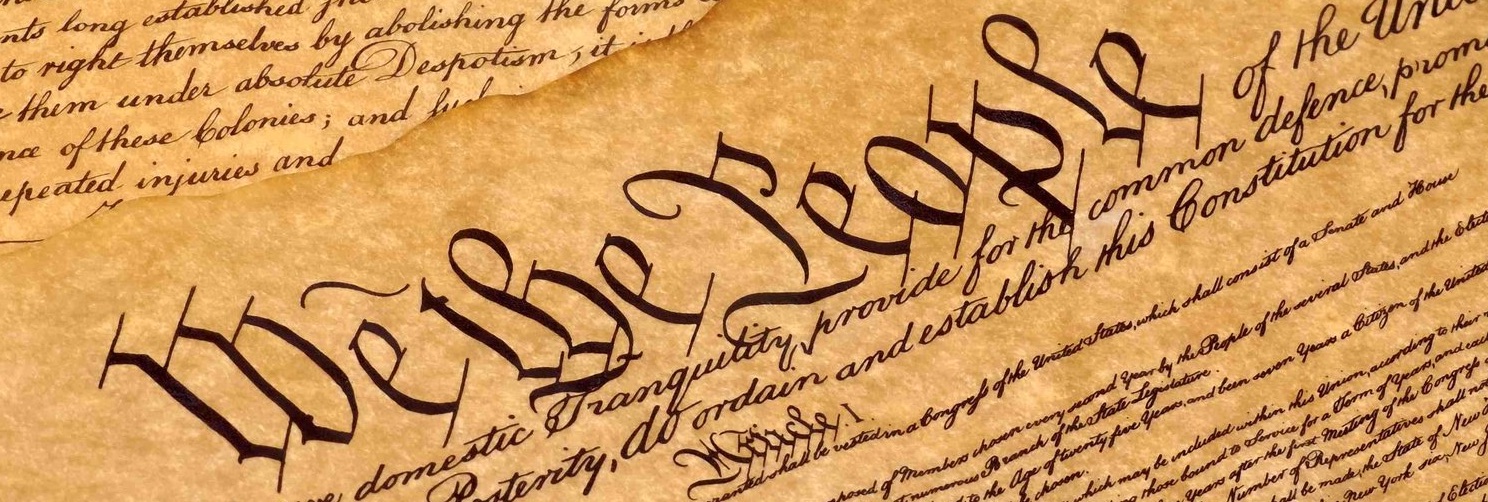 nts long established
to right themselves by abolishing the forms
them under absolute Despotism; it
nce of these Colonies; and
epeated injuries and
We the People of the
domestic Tranquility, provide for the common defence, prom
Posterity, do ordain and establish this Constitution for the
Article. I.
granted shall be vested in a Congress of the United States, which shall consist of a Senate and House
posed of Members chosen every second Year by the People of the several States, and the Elect
numerous Branch of the State Legislature.
to the Age of twenty five Years, and been seven Years a Citizen of the United
chosen.
which may be included within this Union, according to their
those bound to Service for a Term of Years, and
Years after the first Meeting of the Congress
Number of Representatives shall not
shall be made, the State of New
New York six, New